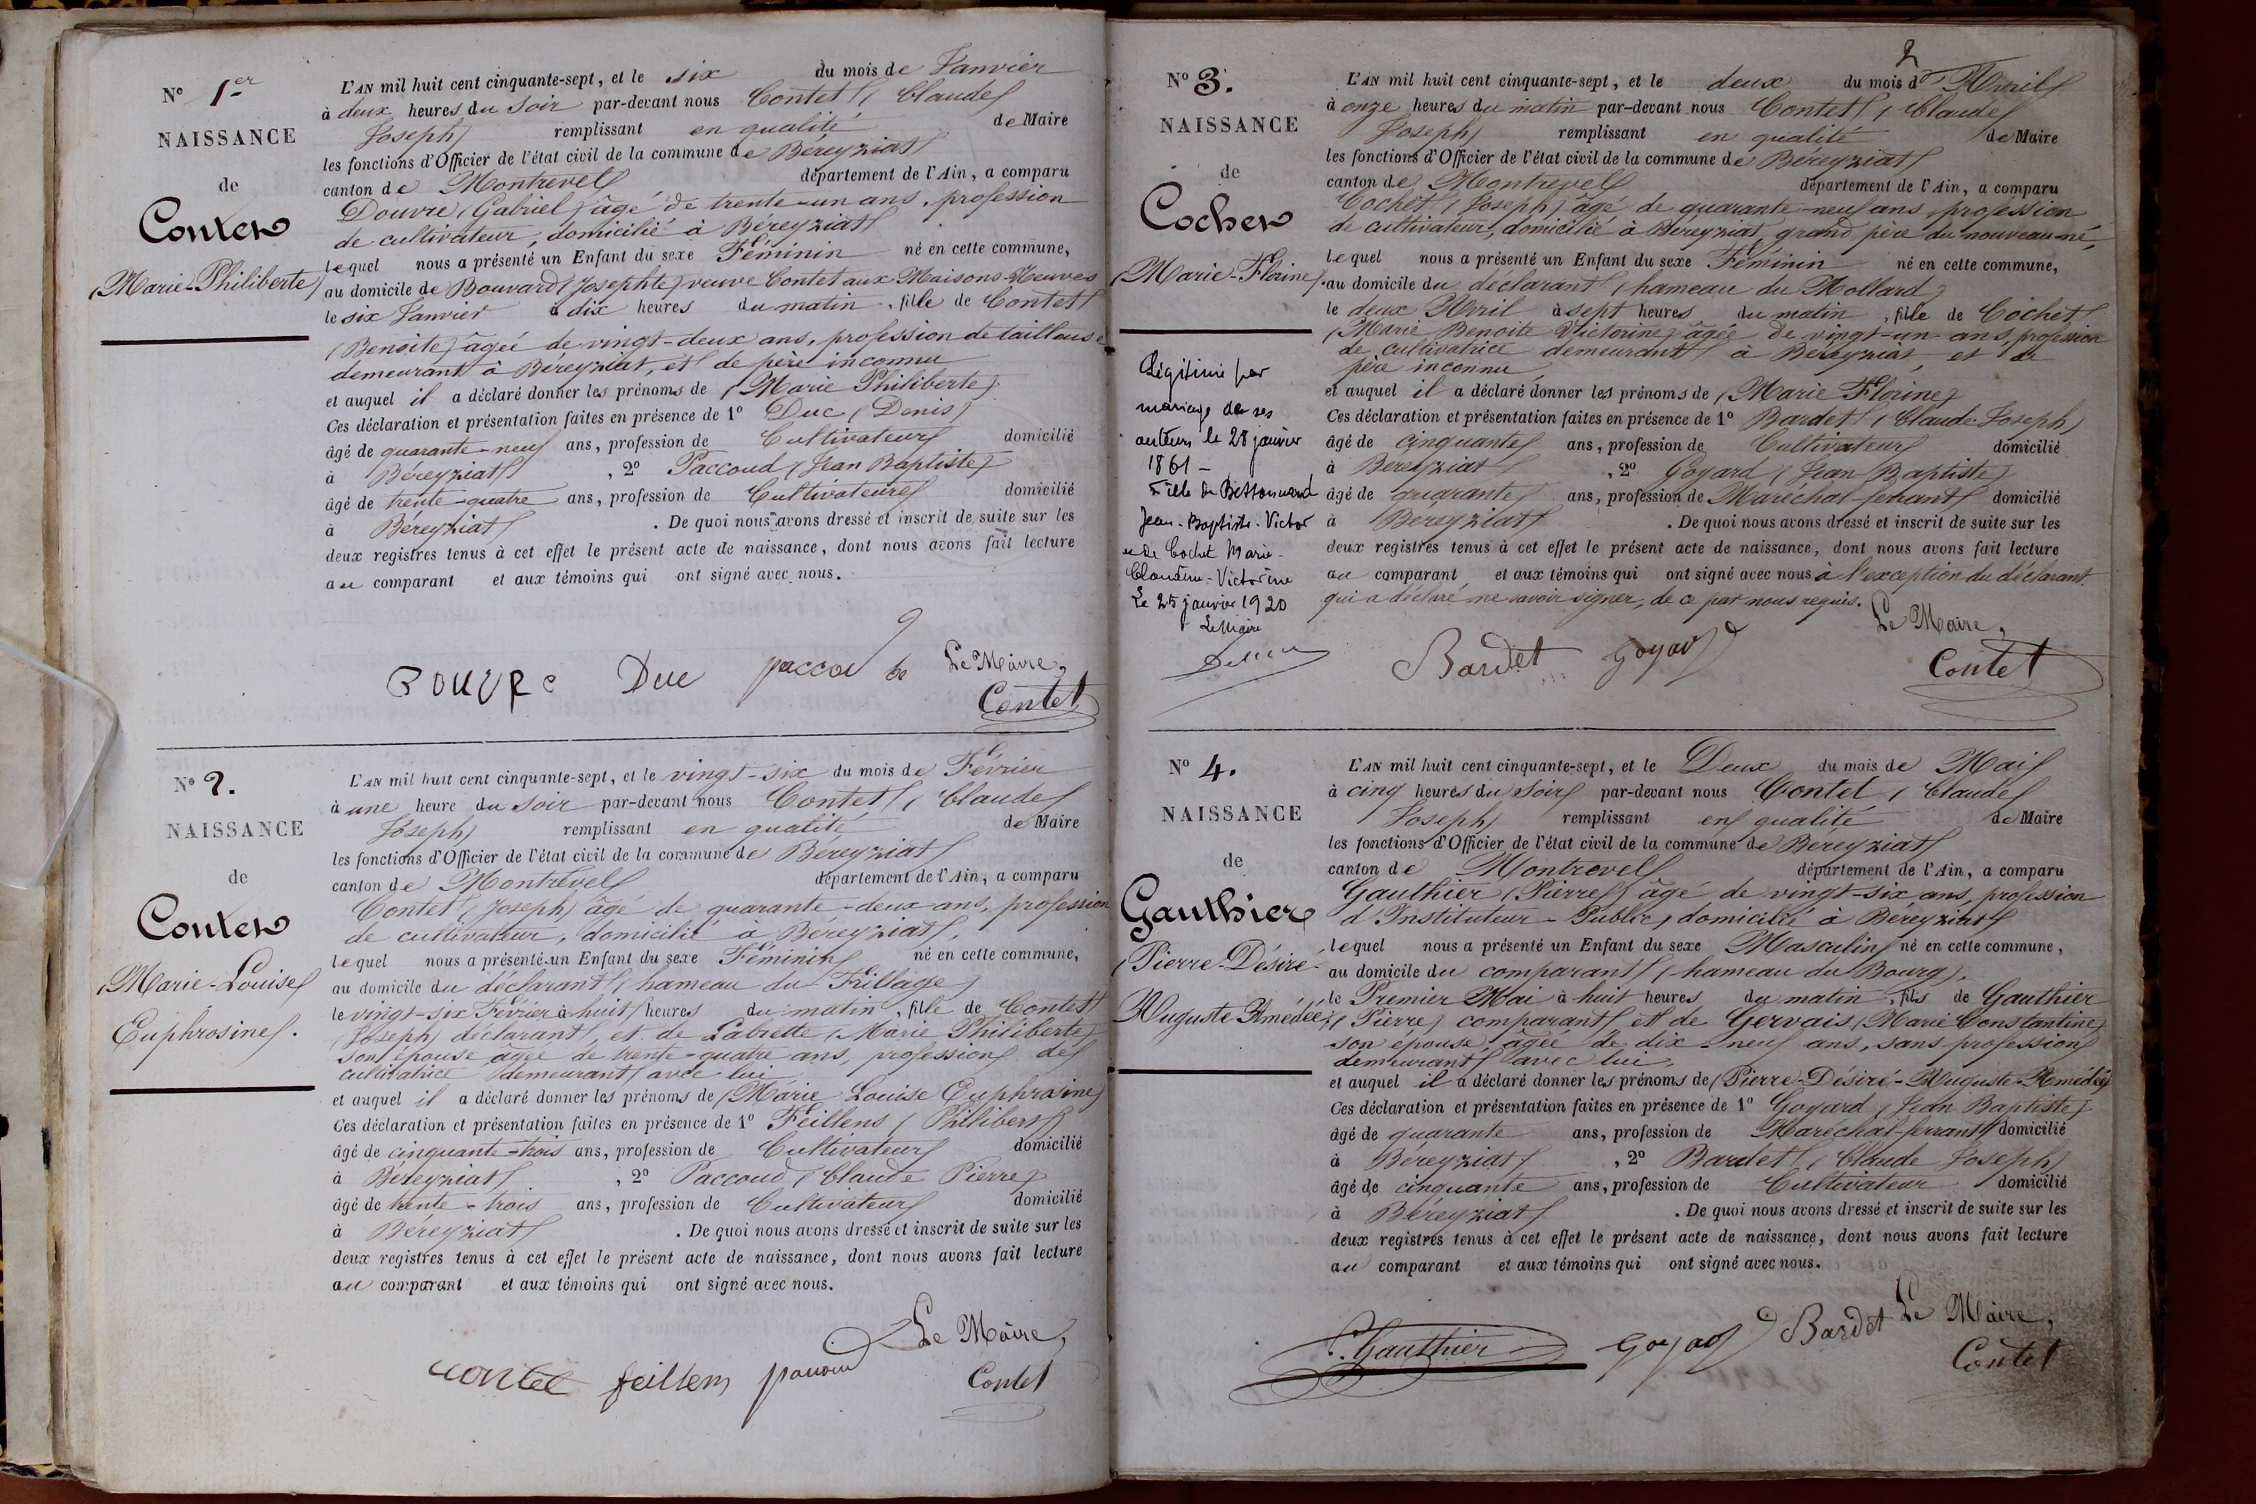 N° 1er
NAISSANCE
de
Contet
(Marie-Philiberte)
L'AN mil huit cent cinquante-sept, et le six du mois de Janvier
à deux heures du soir par-devant nous Contet (Claude
Joseph) remplissant en qualité de Maire
les fonctions d'Officier de l'état civil de la commune de Béreyziat
canton de Montrevel département de l'Ain, a comparu
Douvre (Gabriel) âgé de trente-un ans, profession
de cultivateur, domicilié à Béreyziat
lequel nous a présenté un Enfant du sexe Féminin né en cette commune,
au domicile de Bouvard (Josephte) veuve Contet aux Maisons-Neuves
le six Janvier à dix heures du matin, fille de Contet
(Benoite) âgée de vingt-deux ans, profession de tailleuse
demeurant à Béreyziat, et de père inconnu
et auquel il a déclaré donner les prénoms de (Marie Philiberte)
Ces déclaration et présentation faites en présence de 1° Duc (Denis)
âgé de quarante-neuf ans, profession de Cultivateur domicilié
à Béreyziat, 2° Paccoud (Jean Baptiste)
âgé de trente-quatre ans, profession de Cultivateur domicilié
à Béreyziat. De quoi nous avons dressé et inscrit de suite sur les
deux registres tenus à cet effet le présent acte de naissance, dont nous avons fait lecture
au comparant et aux témoins qui ont signé avec nous.
Le Maire,
Douvre Duc paccoud Contet
N° 2.
NAISSANCE
de
Contet
(Marie-Louise
Euphrosine).
L'AN mil huit cent cinquante-sept, et le vingt-six du mois de Février
à une heure du soir par-devant nous Contet (Claude
Joseph) remplissant en qualité de Maire
les fonctions d'Officier de l'état civil de la commune de Béreyziat
canton de Montrevel département de l'Ain, a comparu
Contet (Joseph) âgé de quarante-deux ans, profession
de cultivateur, domicilié à Béreyziat,
lequel nous a présenté un Enfant du sexe Féminin né en cette commune,
au domicile du déclarant (hameau du Fillage)
le vingt-six Février à huit heures du matin, fille de Contet
(Joseph) déclarant, et de Labrette (Marie Philiberte)
son épouse âgée de trente-quatre ans, profession de
cultivatrice demeurant avec lui
et auquel il a déclaré donner les prénoms de (Marie Louise Euphrosine)
Ces déclaration et présentation faites en présence de 1° Feillens (Philibert)
âgé de cinquante-trois ans, profession de Cultivateur domicilié
à Béreyziat, 2° Paccoud (Claude Pierre)
âgé de trente-trois ans, profession de Cultivateur domicilié
à Béreyziat. De quoi nous avons dressé et inscrit de suite sur les
deux registres tenus à cet effet le présent acte de naissance, dont nous avons fait lecture
au comparant et aux témoins qui ont signé avec nous.
Le Maire,
contet feillens paccoud Contet
2
N° 3.
NAISSANCE
de
Cochet
(Marie-Florine).
Légitimée par
mariage de ses
auteurs le 28 janvier
1861 -
Fille de
Jean-Baptiste-Victor
et de Cochet Marie-
Claudine-Victorine
Le 25 janvier 1920
Le Maire
L'AN mil huit cent cinquante-sept, et le deux du mois d'Avril
à onze heures du matin par-devant nous Contet (Claude
Joseph) remplissant en qualité de Maire
les fonctions d'Officier de l'état civil de la commune de Béreyziat
canton de Montrevel département de l'Ain, a comparu
Cochet (Joseph) âgé de quarante-neuf ans, profession
de cultivateur, domicilié à Béreyziat, grand père du nouveau-né,
lequel nous a présenté un Enfant du sexe Féminin né en cette commune,
au domicile du déclarant (hameau du Mollard)
le deux Avril à sept heures du matin, fille de Cochet
(Marie Benoite Victorine) âgée de vingt-un ans, profession
de cultivatrice demeurant à Béreyziat, et de
père inconnu
et auquel il a déclaré donner les prénoms de (Marie Florine)
Ces déclaration et présentation faites en présence de 1° Bardet (Claude Joseph)
âgé de cinquante ans, profession de Cultivateur domicilié
à Béreyziat, 2° Goyard (Jean Baptiste)
âgé de quarante ans, profession de Maréchal-ferrant domicilié
à Béreyziat. De quoi nous avons dressé et inscrit de suite sur les
deux registres tenus à cet effet le présent acte de naissance, dont nous avons fait lecture
au comparant et aux témoins qui ont signé avec nous à l'exception du déclarant
qui a déclaré ne savoir signer, de ce par nous requis.
Le Maire,
Bardet goyard Contet
N° 4.
NAISSANCE
de
Gauthier
(Pierre-Désiré-
Auguste-Amédée)
L'AN mil huit cent cinquante-sept, et le Deux du mois de Mai
à cinq heures du soir par-devant nous Contet (Claude
Joseph) remplissant en qualité de Maire
les fonctions d'Officier de l'état civil de la commune de Béreyziat
canton de Montrevel département de l'Ain, a comparu
Gauthier (Pierre) âgé de vingt-six ans, profession
d'Instituteur-Public, domicilié à Béreyziat
lequel nous a présenté un Enfant du sexe Masculin né en cette commune,
au domicile du comparant (hameau du Bourg).
le Premier Mai à huit heures du matin, fils de Gauthier
(Pierre) comparant et de Gervais (Marie Constantine)
son épouse, âgée de dix-neuf ans, sans profession
demeurant avec lui,
et auquel il a déclaré donner les prénoms de (Pierre-Désiré-Auguste-Amédée)
Ces déclaration et présentation faites en présence de 1° Goyard (Jean Baptiste)
âgé de quarante ans, profession de Maréchal-ferrant domicilié
à Béreyziat, 2° Bardet (Claude Joseph)
âgé de cinquante ans, profession de Cultivateur domicilié
à Béreyziat. De quoi nous avons dressé et inscrit de suite sur les
deux registres tenus à cet effet le présent acte de naissance, dont nous avons fait lecture
au comparant et aux témoins qui ont signé avec nous.
Le Maire,
P. Gauthier goyard Bardet Contet